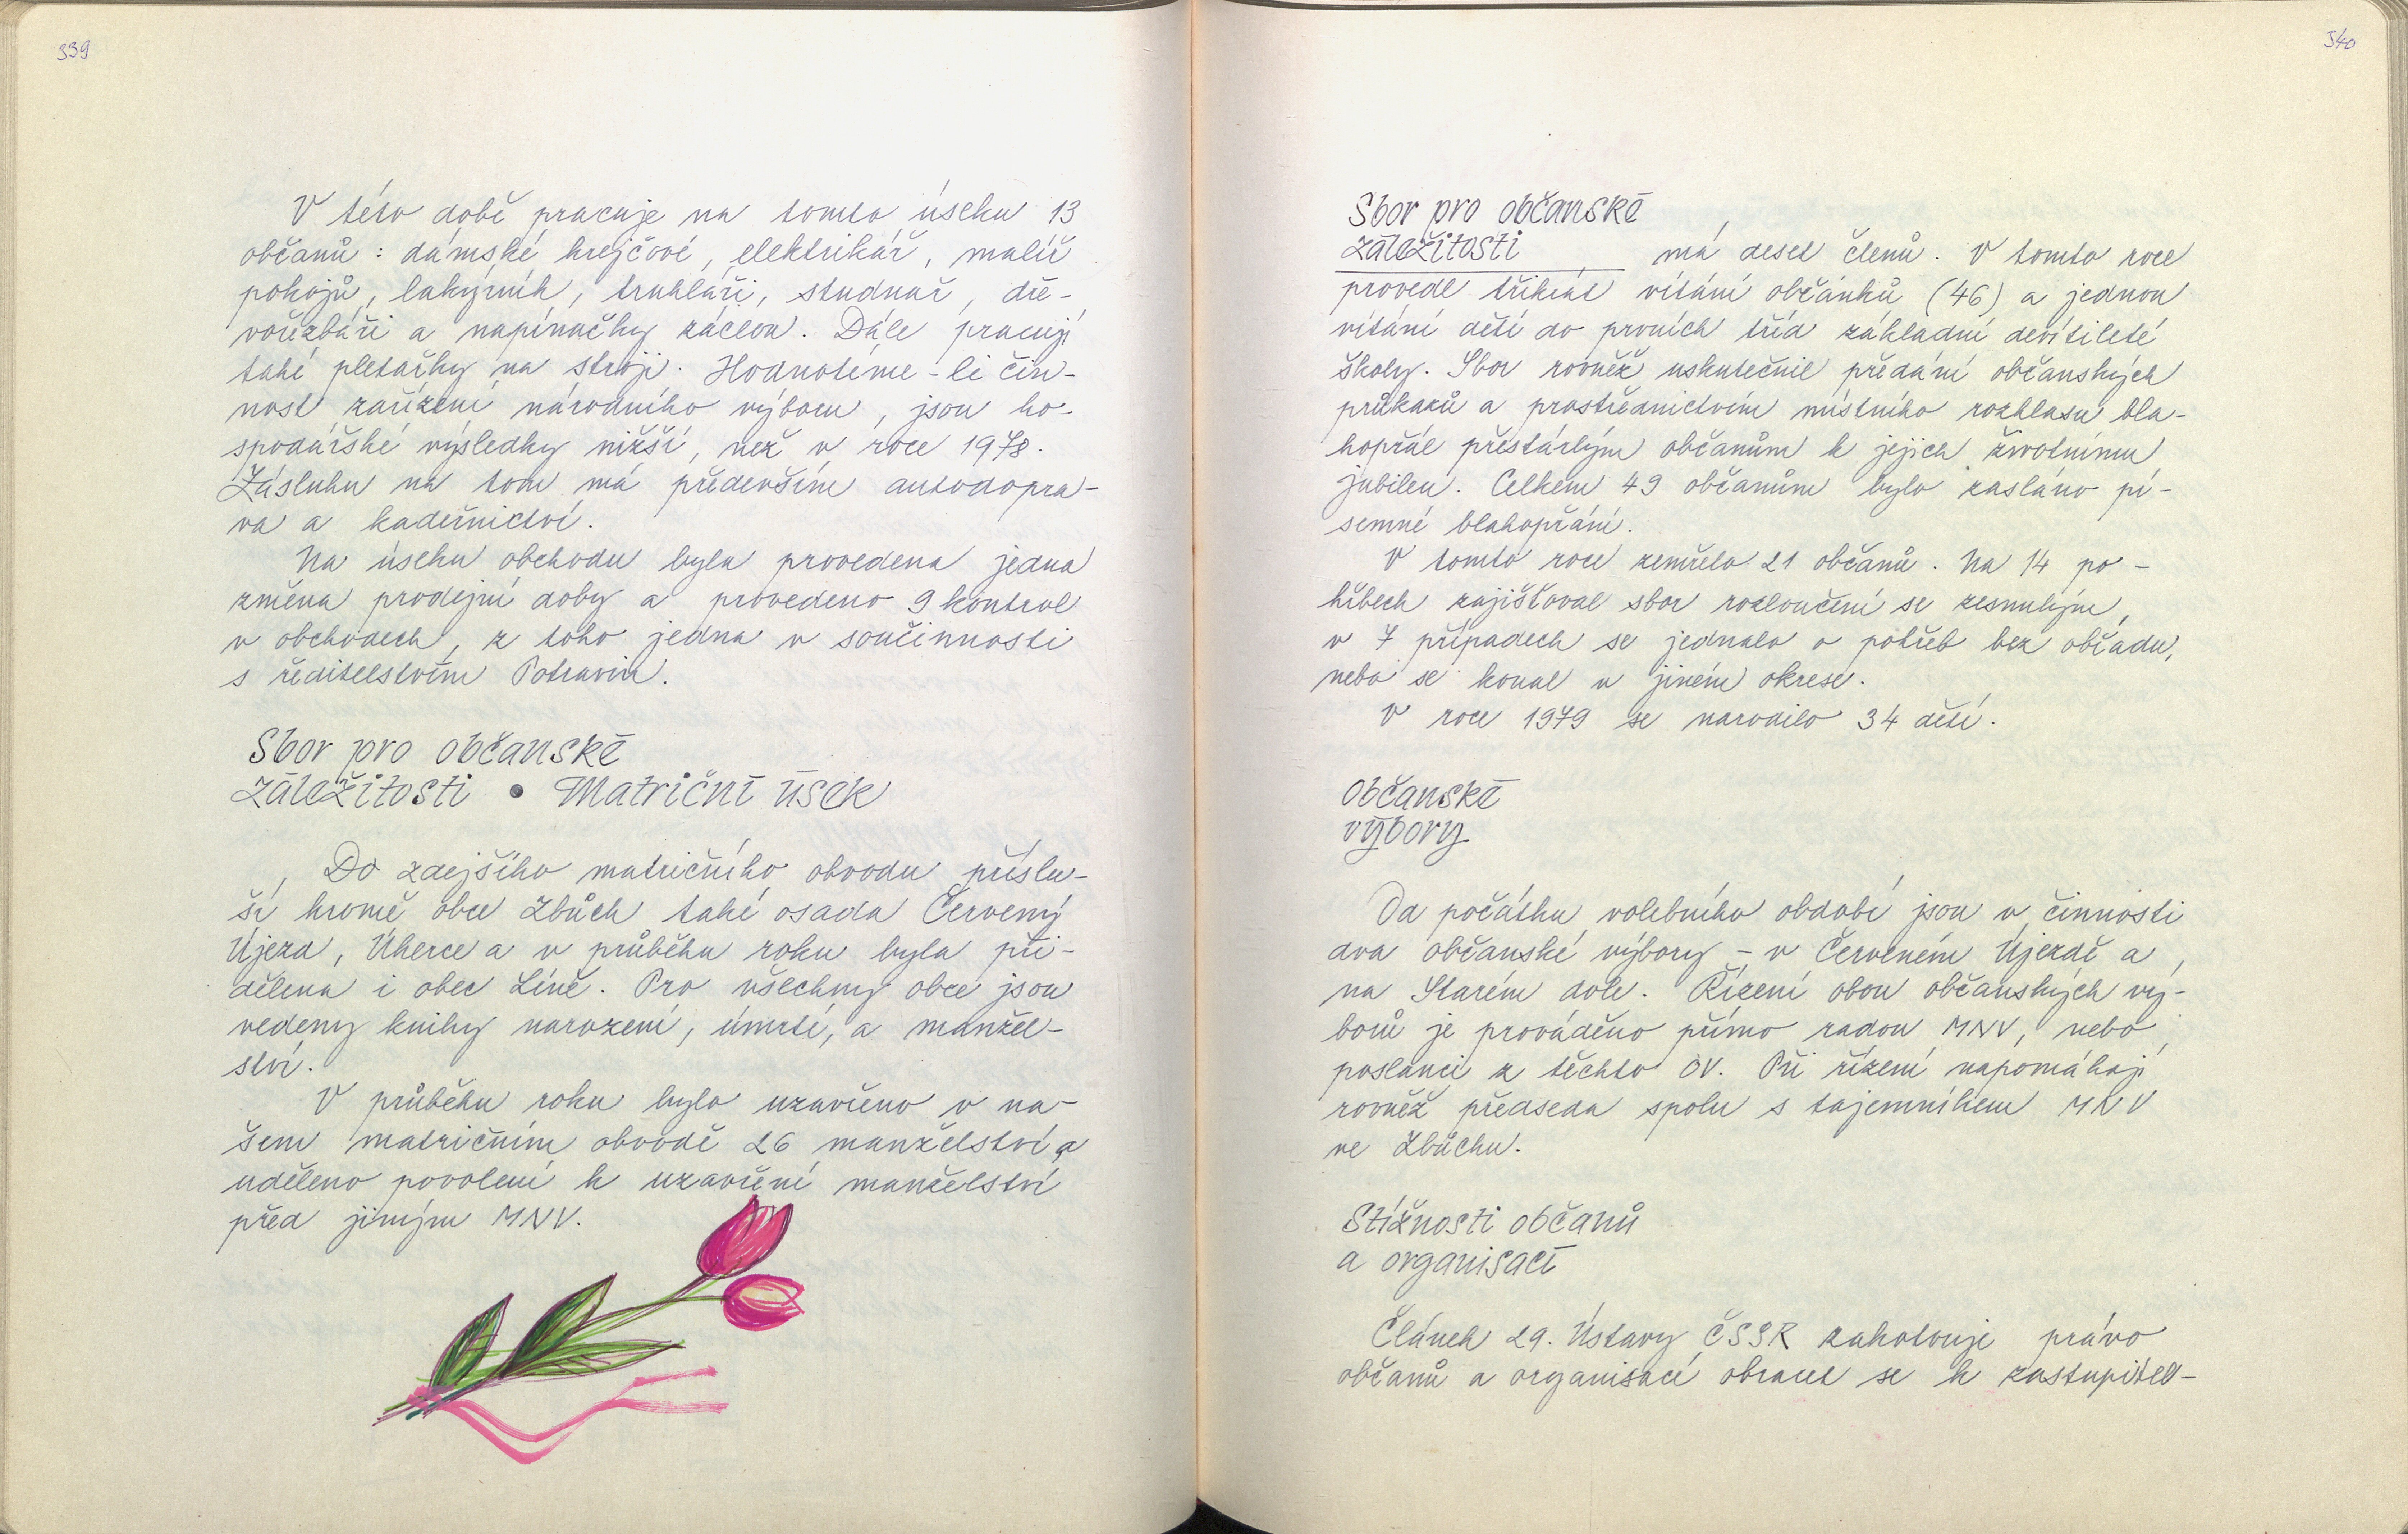 339
V této době pracuje na tomto úseku 13
občanů : dámské krejčové, elektrikář, malíř
pokojů, lakýrník, truhláři, studnař, dře-
vořezbáři a napínačky záclon. Dále pracují
také pletařky na stroji. Hodnotíme-li čin-
nost zařízení národního výboru, jsou ho-
spodářské výsledky nižší, než v roce 1978.
Zásluhu na tom má především autodopra-
va a kadeřnictví.
Na úseku obchodu byla provedena jedna
změna prodejní doby a provedeno 9 kontrol
v obchodech, z toho jedna v součinnosti
s ředitelstvím Potravin.
Sbor pro občanské
záležitosti • Matriční úsek
Do zdejšího matričního obvodu příslu-
ší kromě obce Zbůch také osada Červený
Újezd, Úherce a v průběhu roku byla při-
dělena i obec Líně. Pro všechny obce jsou
vedeny knihy narození, úmrtí, a manžel-
ství.
V průběhu roku bylo uzavřeno v na-
šem matričním obvodě 26 manželství a
uděleno povolení k uzavření manželství
před jiným MNV.
340
Sbor pro občanské
záležitosti má deset členů. V tomto roce
provedl třikrát vítání občánků (46) a jednou
vítání dětí do prvních tříd základní devítileté
školy. Sbor rovněž uskutečnil předání občanských
průkazů a prostřednictvím místního rozhlasu bla-
hopřál přestárlým občanům k jejich životnímu
jubileu. Celkem 49 občanům bylo zasláno pí-
semné blahopřání.
V tomto roce zemřelo 21 občanů. Na 14 po-
hřbech zajišťoval sbor rozloučení se zesnulým,
v 7 případech se jednalo o pohřeb bez obřadu,
nebo se konal v jiném okrese.
V roce 1979 se narodilo 34 dětí.
Občanské
výbory
Od počátku volebního období jsou v činnosti
dva občanské výbory - v Červeném Újezdě a
na Starém dole. Řízení obou občanských vý-
borů je prováděno přímo radou MNV, nebo
poslanci z těchto OV. Při řízení napomáhají
rovněž předseda spolu s tajemníkem MNV
ve Zbůchu.
Stížnosti občanů
a organisací
Článek 29. Ústavy ČSSR zakotvuje právo
občanů a organisací obracet se k zastupitel-